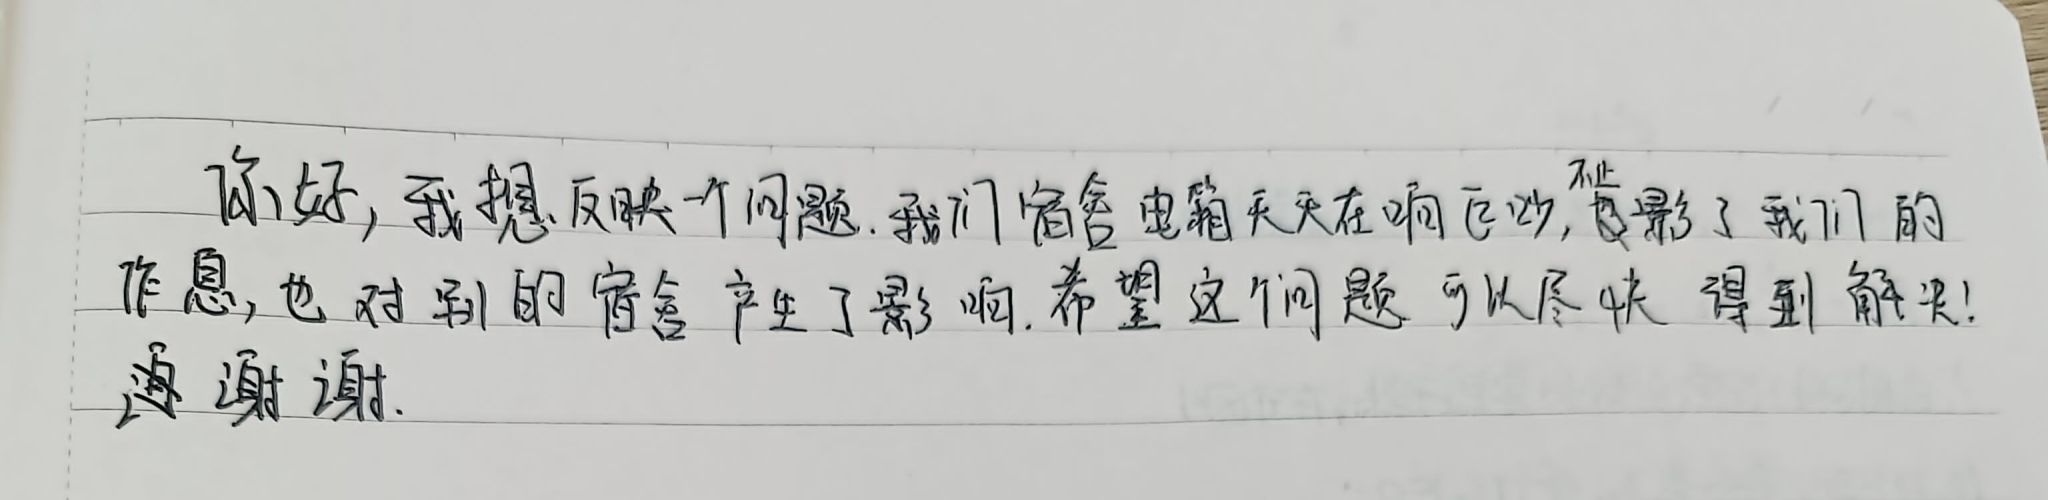 你好，我想反映一个问题.我们宿舍电箱天天在响巨吵,不止影了我们的
作息,也对别的宿舍产生了影响.希望这个问题可以尽快得到解决!
谢谢.